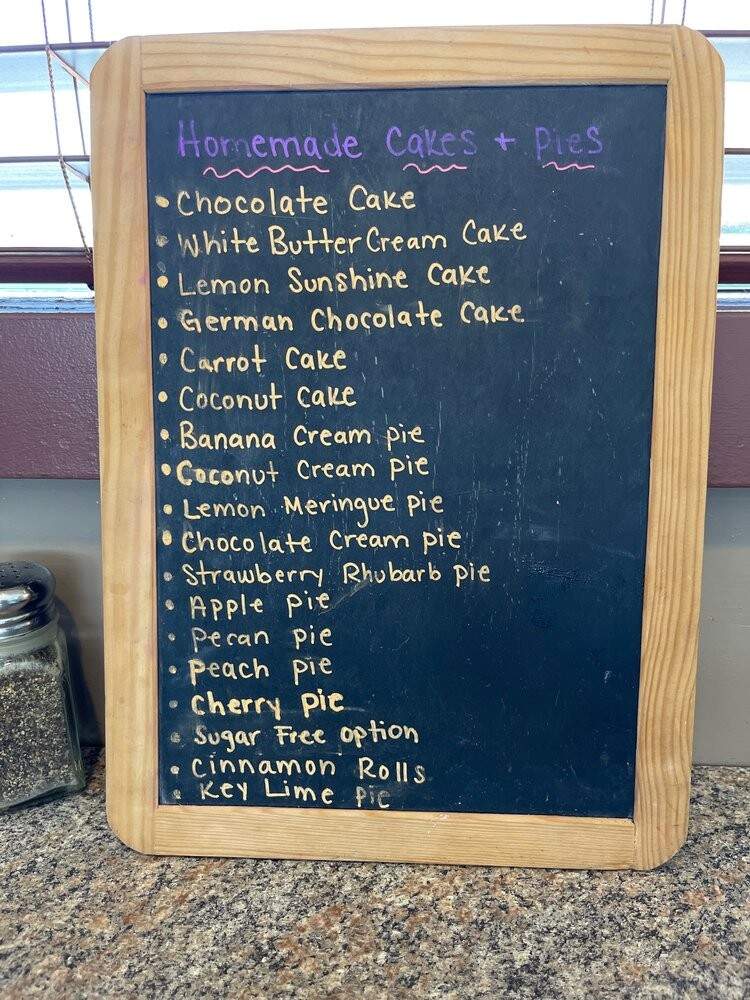 Homemade Cakes + Pies
• Chocolate Cake
• White ButterCream Cake
• Lemon Sunshine Cake
• German Chocolate Cake
• Carrot Cake
• Coconut Cake
• Banana Cream pie
• Coconut Cream pie
• Lemon Meringue pie
• Chocolate Cream pie
• Strawberry Rhubarb pie
• Apple pie
• pecan pie
• peach pie
• Cherry pie
• Sugar Free option
• Cinnamon Rolls
• Key Lime pie